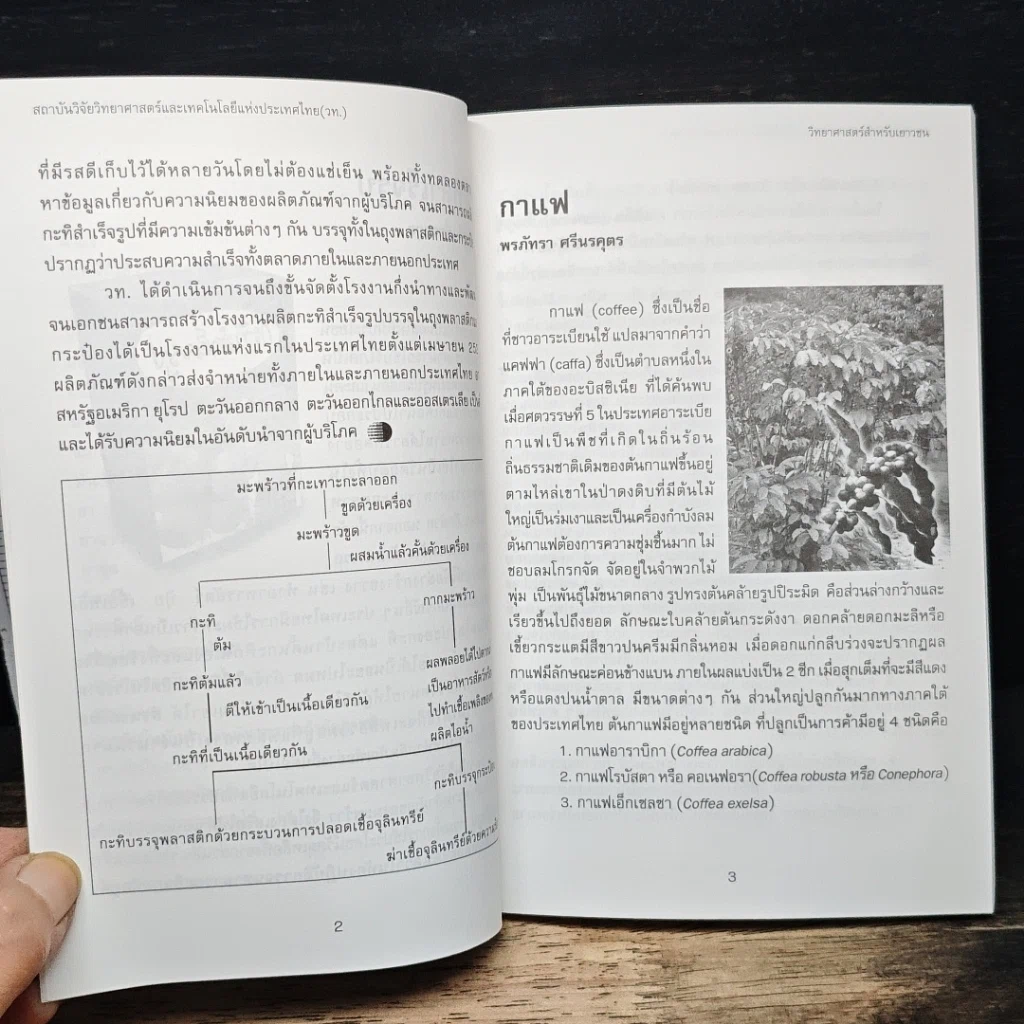 สถาบันวิจัยวิทยาศาสตร์และเทคโนโลยีแห่งประเทศไทย(วท.)
ที่มีรสดีเก็บไว้ได้หลายวันโดยไม่ต้องแช่เย็น พร้อมทั้งทดลองตลา
หาข้อมูลเกี่ยวกับความนิยมของผลิตภัณฑ์จากผู้บริโภค จนสามารถ
กะทิสำเร็จรูปที่มีความเข้มข้นต่างๆ กัน บรรจุทั้งในถุงพลาสติกและกระป๋
ปรากฏว่าประสบความสำเร็จทั้งตลาดภายในและภายนอกประเทศ
วท. ได้ดำเนินการจนถึงขั้นจัดตั้งโรงงานกึ่งนำทางและ
จนเอกชนสามารถสร้างโรงงานผลิตกะทิสำเร็จรูปบรรจุในถุงพลาสติก
กระป๋องได้เป็นโรงงานแห่งแรกในประเทศไทยตั้งแต่เมษายน 25
ผลิตภัณฑ์ดังกล่าวส่งจำหน่ายทั้งภายในและภายนอกประเทศไทย
สหรัฐอเมริกา ยุโรป ตะวันออกกลาง ตะวันออกไกลและออสเตรเลีย
และได้รับความนิยมในอันดับนำจากผู้บริโภค
มะพร้าวที่กะเทาะกะลาออก
ขูดด้วยเครื่อง
มะพร้าวขูด
ผสมน้ำแล้วคั้นด้วยเครื่อง
กะทิ
กากมะพร้าว
ต้ม
ผลพลอยได้ไป
กะทิต้มแล้ว
เป็นอาหารสัตว์
ตีให้เข้าเป็นเนื้อเดียวกัน
ไปทำเชื้อเพลิง
ผลิตไอน้ำ
กะทิที่เป็นเนื้อเดียวกัน
กะทิบรรจุกระป๋อง
กะทิบรรจุพลาสติกด้วยกระบวนการปลอดเชื้อจุลินทรีย์
ฆ่าเชื้อจุลินทรีย์ด้วย
2
วิทยาศาสตร์สำหรับเยาวชน
กาแฟ
พรภัทรา ศรีนรคุตร
กาแฟ (coffee) ซึ่งเป็นชื่อ
ที่ชาวอาระเบียนใช้ แปลมาจากคำว่า
แคฟฟา (caffa) ซึ่งเป็นตำบลหนึ่งใน
ภาคใต้ของอะบิสซิเนีย ที่ได้ค้นพบ
เมื่อศตวรรษที่ 5 ในประเทศอาระเบีย
กาแฟเป็นพืชที่เกิดในถิ่นร้อน
ถิ่นธรรมชาติเดิมของต้นกาแฟขึ้นอยู่
ตามไหล่เขาในป่าดงดิบที่มีต้นไม้
ใหญ่เป็นร่มเงาและเป็นเครื่องกำบังลม
ต้นกาแฟต้องการความชุ่มชื้นมาก ไม่
ชอบลมโกรกจัด จัดอยู่ในจำพวกไม้
พุ่ม เป็นพันธุ์ไม้ขนาดกลาง รูปทรงต้นคล้ายรูปปิระมิด คือส่วนล่างกว้างและ
เรียวขึ้นไปถึงยอด ลักษณะใบคล้ายต้นกระดังงา ดอกคล้ายดอกมะลิหรือ
เขี้ยวกระแตมีสีขาวปนครีมมีกลิ่นหอม เมื่อดอกแก่กลีบร่วงจะปรากฏผล
กาแฟมีลักษณะค่อนข้างแบน ภายในผลแบ่งเป็น 2 ซีก เมื่อสุกเต็มที่จะมีสีแดง
หรือแดงปนน้ำตาล มีขนาดต่างๆ กัน ส่วนใหญ่ปลูกกันมากทางภาคใต้
ของประเทศไทย ต้นกาแฟมีอยู่หลายชนิด ที่ปลูกเป็นการค้ามีอยู่ 4 ชนิดคือ
1. กาแฟอาราบิกา (Coffea arabica)
2. กาแฟโรบัสตา หรือ คอเนฟอรา(Coffea robusta หรือ Conephora)
3. กาแฟเอ็กเซลซา (Coffea exelsa)
3